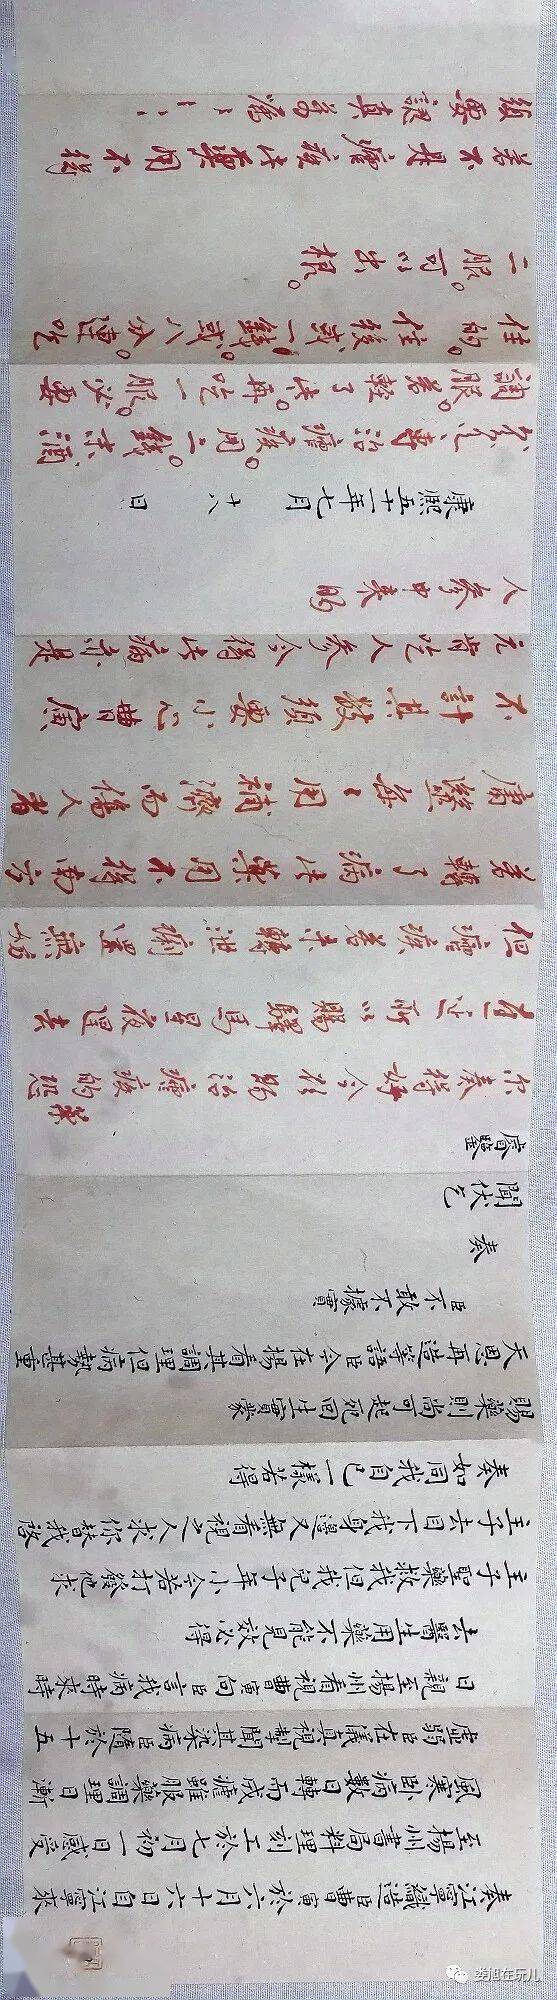 奏江寧織造臣曹寅於六月十六日自江寧來
至揚州書局料理刻工於七月初一日感受
風寒卧病數日轉而成瘧雖服藥調理日漸
虛弱臣在儀真視掣聞其染病臣隨於十五
日親至揚州看視曹寅向臣言我病時來時
去醫生用藥不能見效必得
主子聖藥救我但我兒子年小今若打發他求
主子去目下我身邊又無看視之人求你替我啓
奏如同我自己一樣若得
賜藥則尚可起死回生實蒙
天恩再造等語臣今在揚看其調理但病勢甚重
臣不敢不據實
奏
聞伏乞
睿鑒
尔奏得好今欲賜治瘧疾的藥恐
遲延所以賜驛馬星夜趕去
但瘧疾若未轉泄痢還無妨
若轉了病此藥用不得南方
庸醫每〻用補濟而傷人者
不計其數須要小心曹寅
元肯吃人參今得此病亦是
人參中來的
康熙五十一年七月十八日
專治瘧疾。用二錢。末酒
調服。若輕了些。再吃一服。必要
住的。住後或一錢。或八分。連吃
二服。可以出根。
若不是瘧疾此藥用不得
須要認真萬囑〻〻〻
娄旭在玩儿